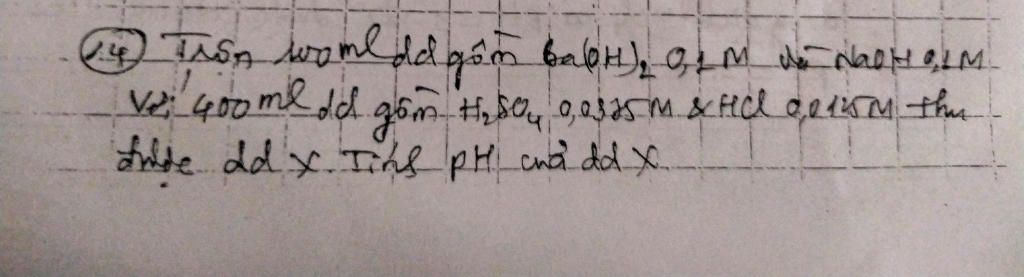 1.4 Trộn 100ml dd gồm Ba(OH)₂ 0,1M và NaOH 0,1M
Với 400ml dd gồm H₂SO₄ 0,0375M & HCl 0,0125M thu
được dd X. Tính pH của dd X